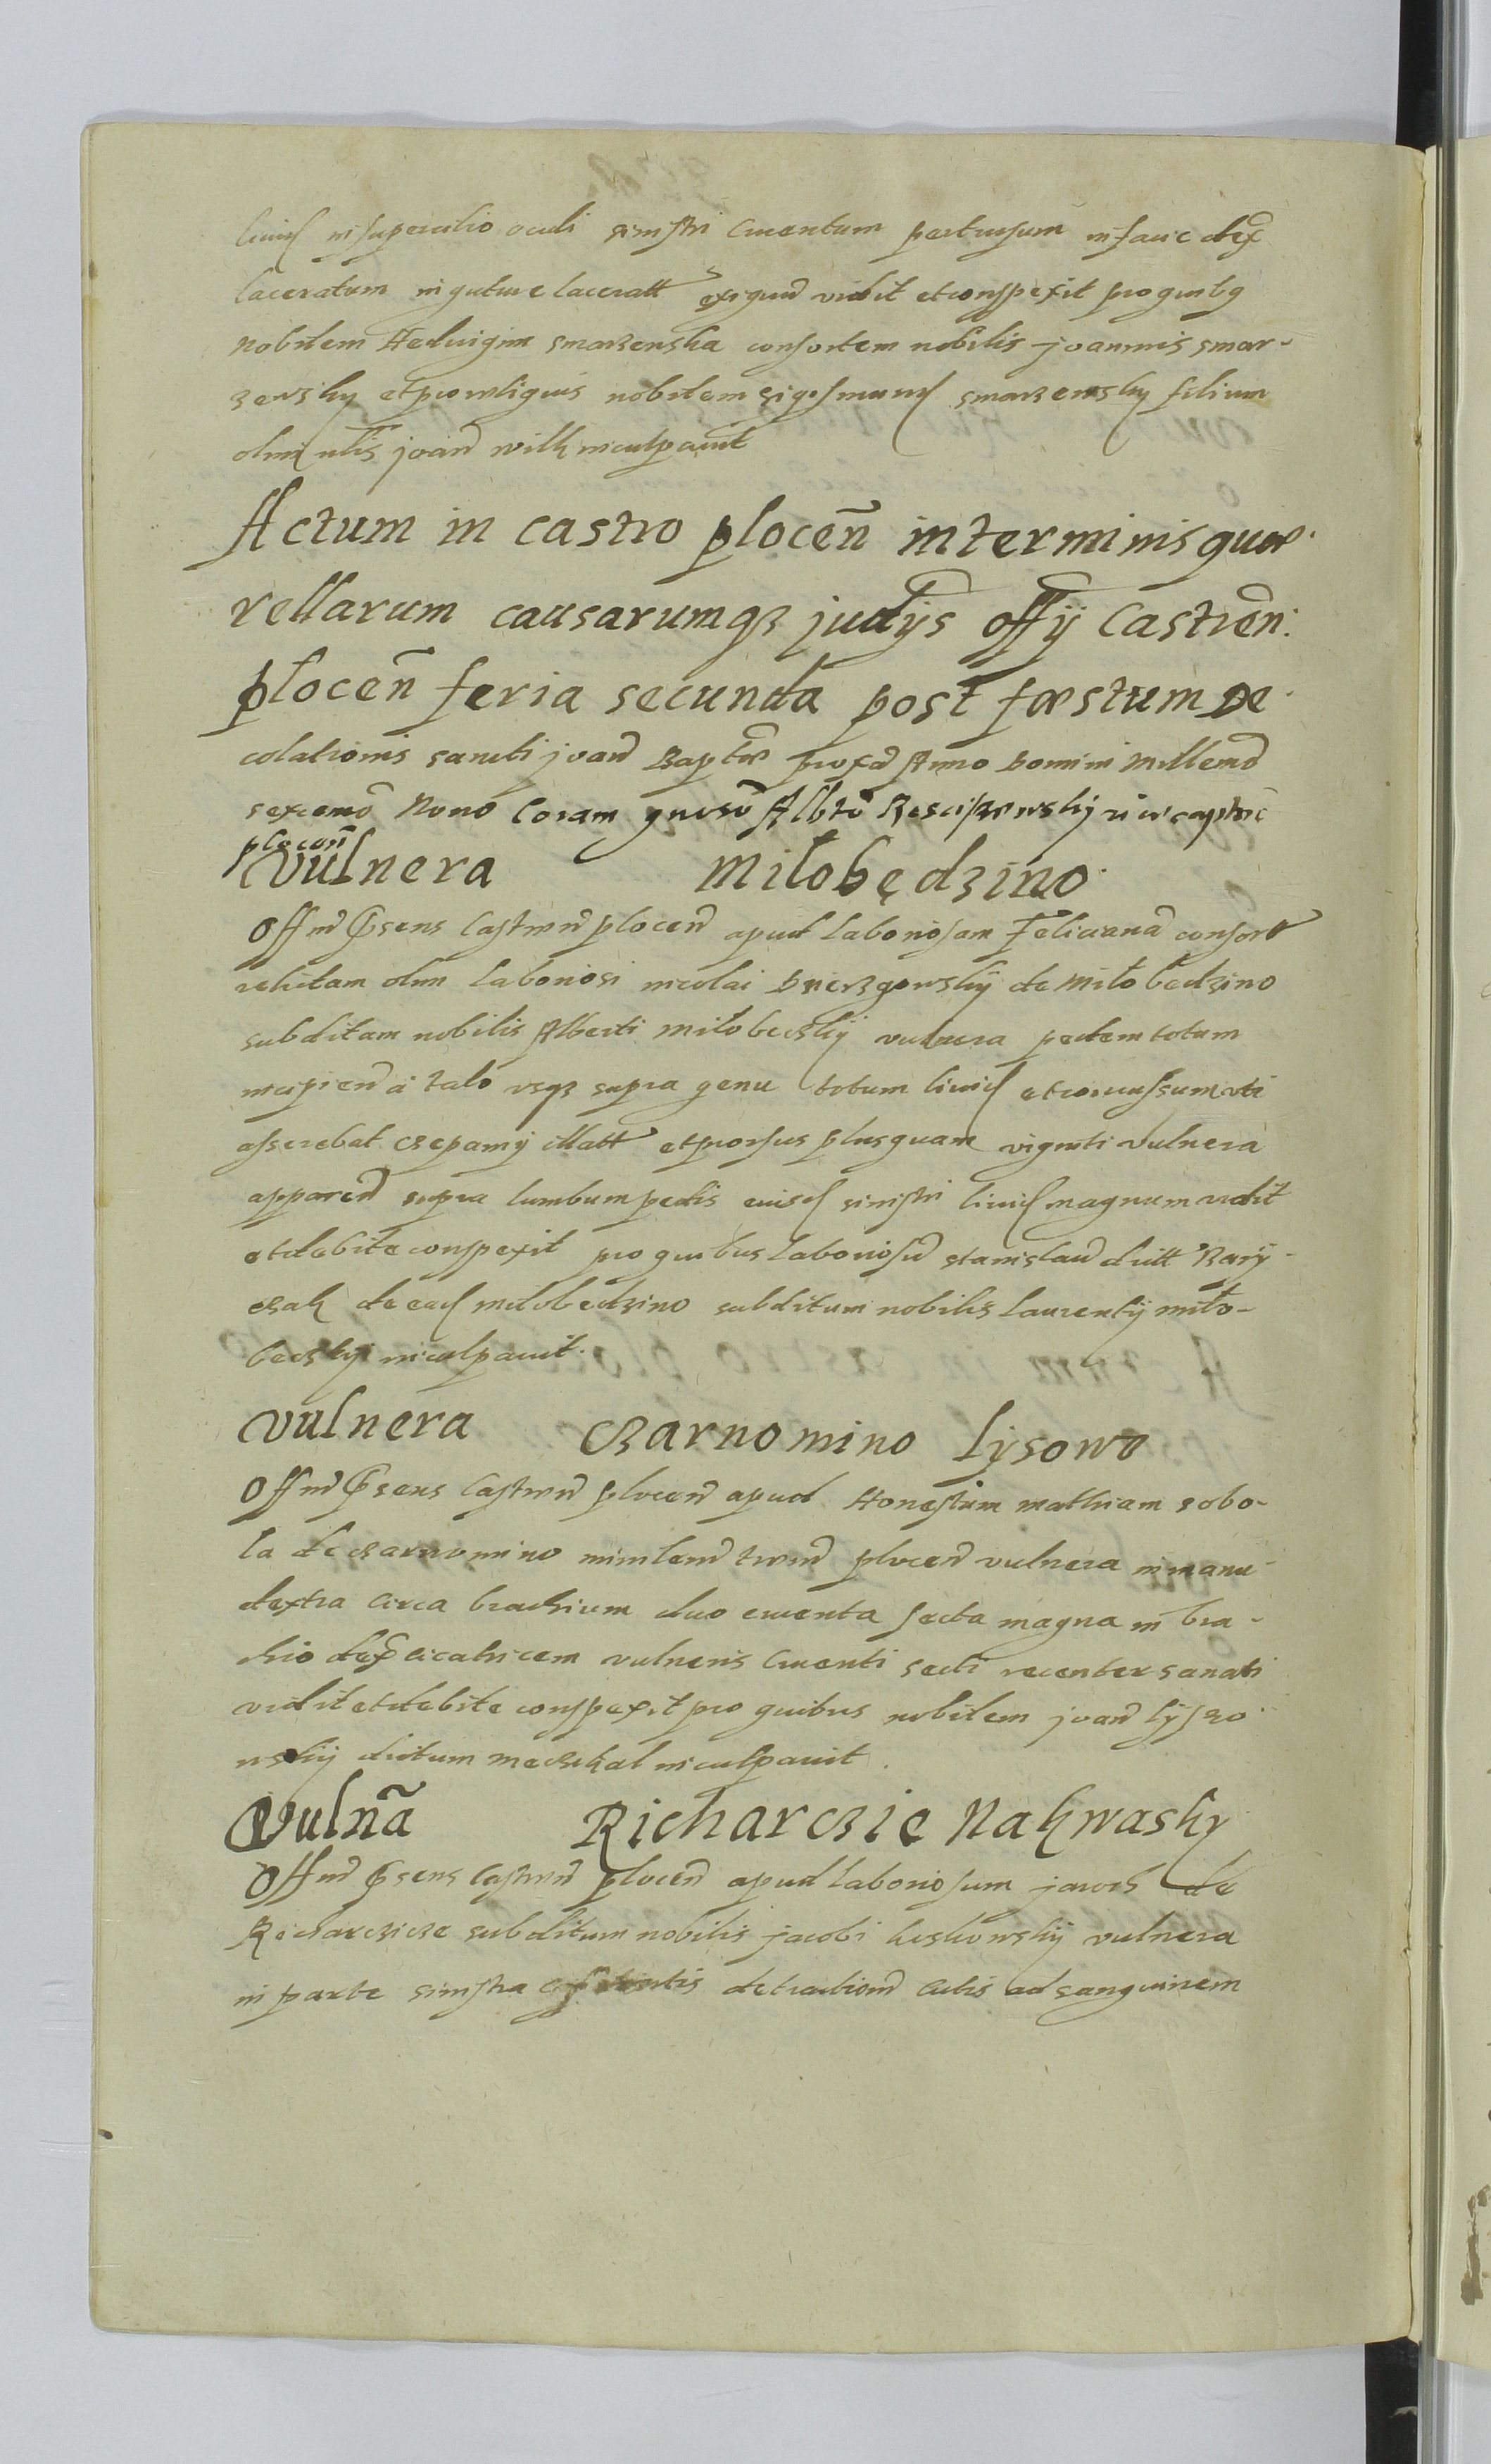 livid in supercilio oculi sinistri cruentum pertusum in facie dex
laceratum in guture laceratt exiguu vidit et conspexit pro quibq
nobilem Hedvigim smarzenska consortem nobilis joannis smar-
zewsky et pro reliquis nobilem sigismund smarzewsky filium
olim joan wilk inculpavit
Actum in castro plocen̄ in terminis quæ
rellarum causarumqz judijs offij Castren:
plocen̄ feria secunda post fæstum De
colationis sancti joan Baptæ proxa Anno Domini Millemo
sexcemo Nono Coram gnoso Albto vicecaptnē
plocen̄
Vulnera Miłobędzino
Offm p̄sens Castren plocen apud laboriosam Felicianā consort
relictam olim laboriosi nicolai bierzgowskij de Miłobedzino
subditam nobilis Alberti miłobeckij vulnera pedem totum
incipien à talo vsqz supra genu totum livid et concussum vti
asserebat czepamij illatt et prorsus plusquam viginti vulnera
apparen supra lumbum pedis eiusd sinistri livid magnum vidit
et debite conspexit pro quibus laboriosu stanislau dictt Barÿ-
czak de ead miłobedzino subditum nobilis laurentij miło-
beckij inculpavit.
Vulnera Czarnomino Lysowo
Offm p̄sens Castren plocen apud Honestum mathiam sobo-
la de czarnomino plocen vulnera in manu
dextra circa brachium duo cruenta secta magna in bra-
chio dex cicatricem vulneris cruenti secti recenter sanati
vidit et debite conspexit pro quibus nobilem joan lysso
wskij dictum inculpavit.
Vulnā Richarczice Nakwasky
Offm p̄sens Castren plocen apud laboriosum de
Richarczicze subditum nobilis jacobi vulnera
in parte sinistra detractionē cutis ad sanguinem